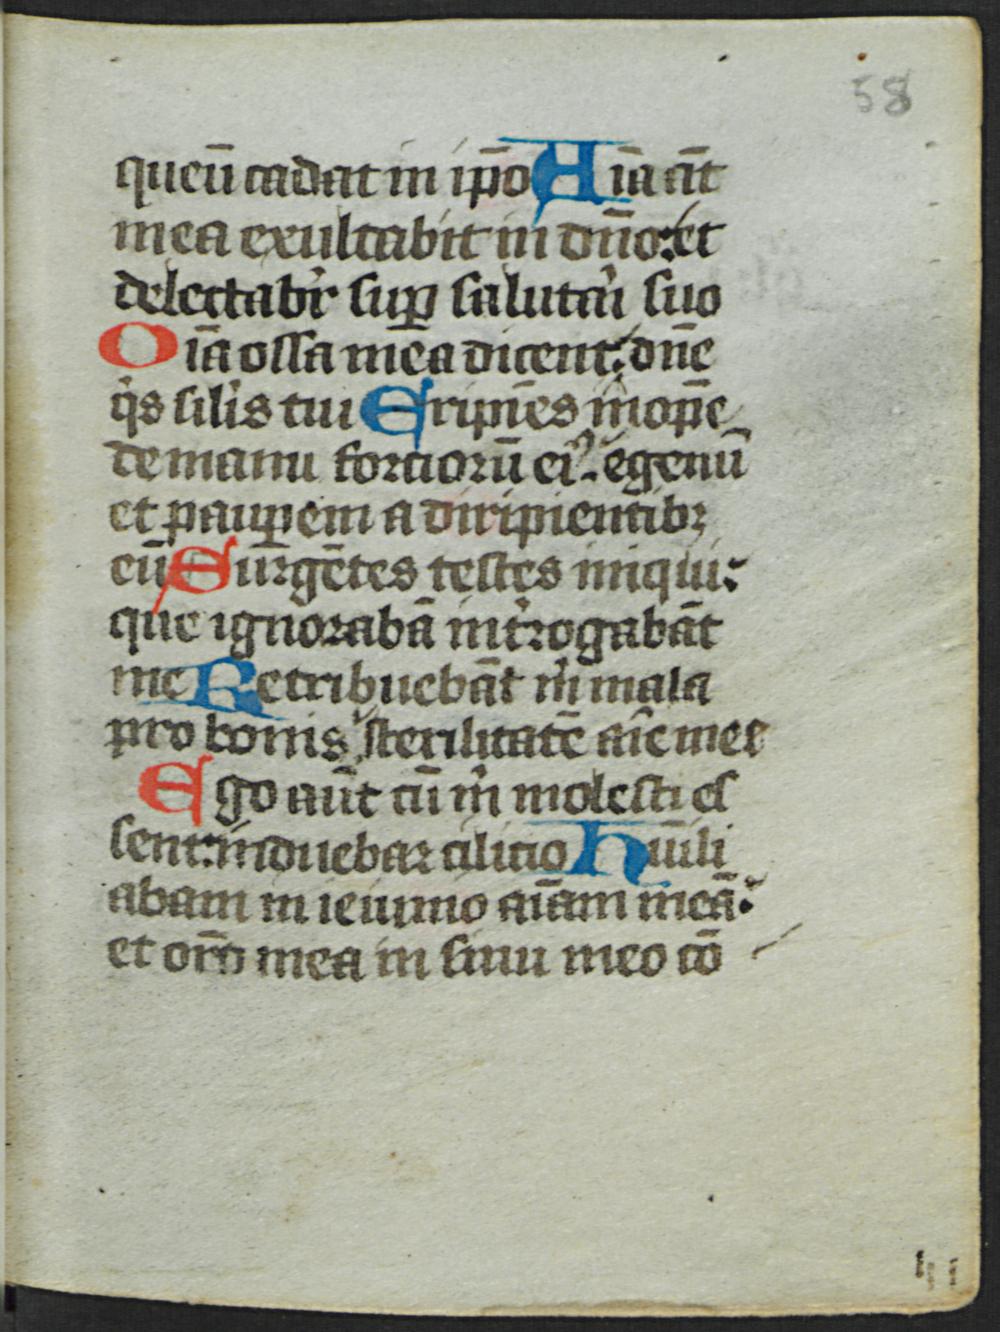 58
queū cadat in ip̄o Aīa āt
mea exultabit in dn̄o: et
delectabr̄ sup̱ salutaʳi suo
Oīa ossa mea dicent: dn̄e
qⁱs silⁱis tui Eripīes inopē
de manu fortiorū eiꝰ: egenū
et paup̱em a diripientibꝫ
eū Surgētes testes iniqui:
que ignorabā int̄rogabāt
me Retribuebāt mⁱ mala
pro bonis sterilitatē aīe mee
Ego aūt cū mⁱ molesti es
sent: induebar cilicio Hūili
abam in ieiunio aīam meā:
et orō mea in sinu meo cō